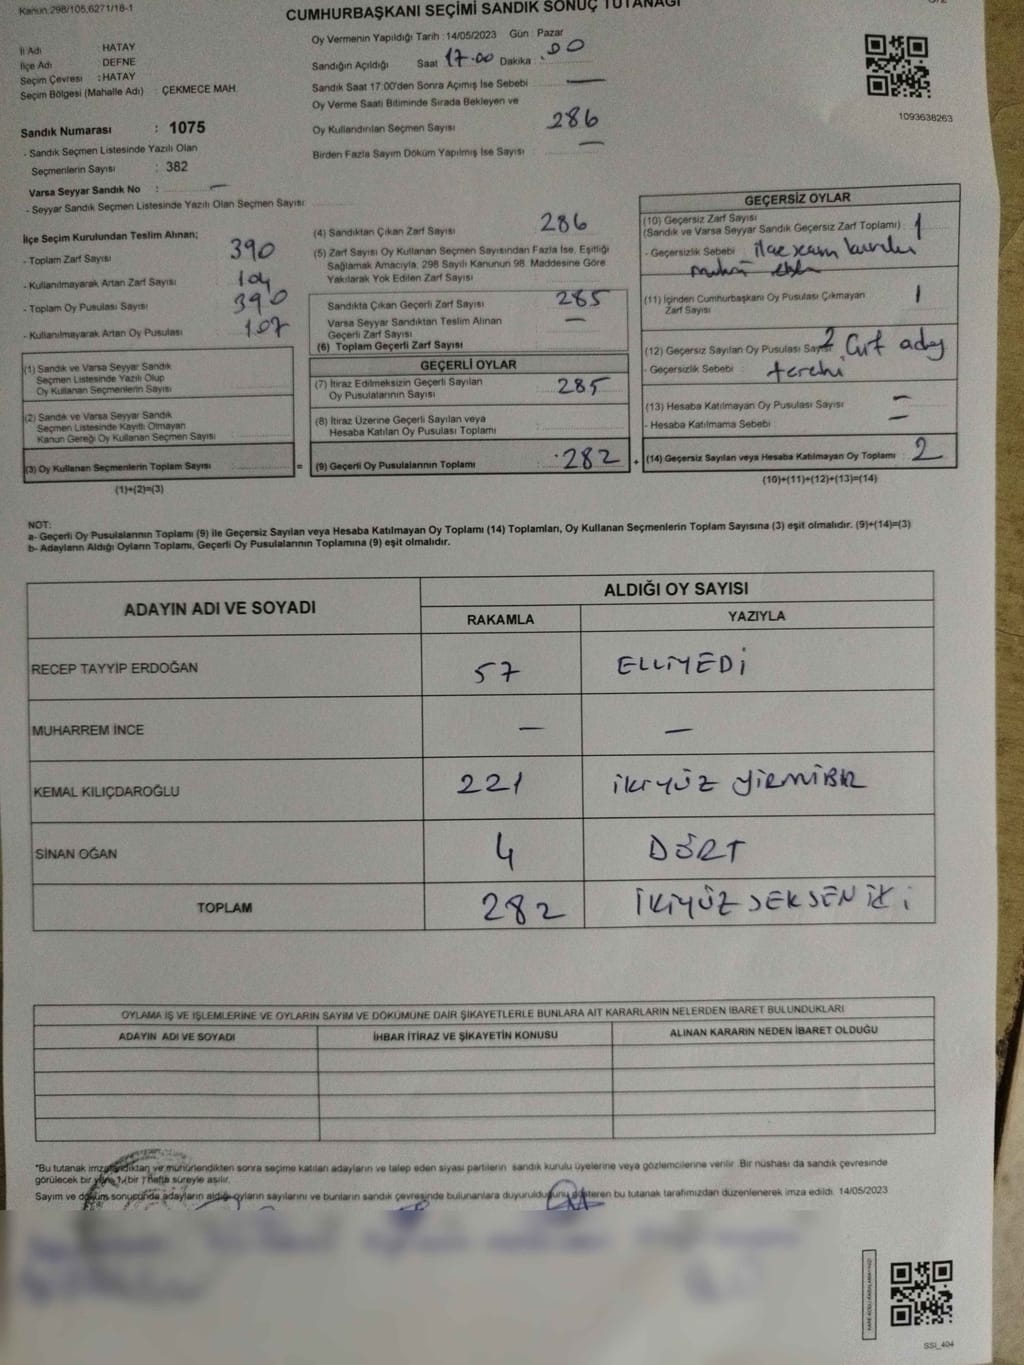 Kanun:298/105,6271/18-1
CUMHURBAŞKANI SEÇİMİ SANDIK SONUÇ TUTANAĞI
İl Adı : HATAY
İlçe Adı : DEFNE
Seçim Çevresi : HATAY
Seçim Bölgesi (Mahalle Adı) : ÇEKMECE MAH.
Sandık Numarası : 1075
- Sandık Seçmen Listesinde Yazılı Olan
Seçmenlerin Sayısı : 382
Varsa Seyyar Sandık No : —
- Seyyar Sandık Seçmen Listesinde Yazılı Olan Seçmen Sayısı:
Oy Vermenin Yapıldığı Tarih : 14/05/2023 Gün : Pazar
Sandığın Açıldığı Saat 17.00 Dakika : 00
Sandık Saat 17:00'den Sonra Açımış İse Sebebi : —
Oy Verme Saati Bitiminde Sırada Bekleyen ve
Oy Kullandırılan Seçmen Sayısı : 286
Birden Fazla Sayım Döküm Yapılmış İse Sayısı : —
1093638263
İlçe Seçim Kurulundan Teslim Alınan;
- Toplam Zarf Sayısı : 390
- Kullanılmayarak Artan Zarf Sayısı : 104
- Toplam Oy Pusulası Sayısı : 390
- Kullanılmayarak Artan Oy Pusulası : 107
(1) Sandık ve Varsa Seyyar Sandık
Seçmen Listesinde Yazılı Olup
Oy Kullanan Seçmenlerin Sayısı :
(2) Sandık ve Varsa Seyyar Sandık
Seçmen Listesinde Kayıtlı Olmayan
Kanun Gereği Oy Kullanan Seçmen Sayısı :
(3) Oy Kullanan Seçmenlerin Toplam Sayısı : =
(1)+(2)=(3)
(4) Sandıktan Çıkan Zarf Sayısı : 286
(5) Zarf Sayısı Oy Kullanan Seçmen Sayısından Fazla İse, Eşitliği
Sağlamak Amacıyla; 298 Sayılı Kanunun 98. Maddesine Göre
Yakılarak Yok Edilen Zarf Sayısı :
Sandıkta Çıkan Geçerli Zarf Sayısı : 285
Varsa Seyyar Sandıktan Teslim Alınan
Geçerli Zarf Sayısı : —
(6) Toplam Geçerli Zarf Sayısı :
GEÇERLİ OYLAR
(7) İtiraz Edilmeksizin Geçerli Sayılan
Oy Pusulalarının Sayısı : 285
(8) İtiraz Üzerine Geçerli Sayılan veya
Hesaba Katılan Oy Pusulası Toplamı :
(9) Geçerli Oy Pusulalarının Toplamı : 282 +
GEÇERSİZ OYLAR
(10) Geçersiz Zarf Sayısı
(Sandık ve Varsa Seyyar Sandık Geçersiz Zarf Toplamı) : 1
- Geçersizlik Sebebi : ilçe seçim kurulu
(11) İçinden Cumhurbaşkanı Oy Pusulası Çıkmayan
Zarf Sayısı : 1
(12) Geçersiz Sayılan Oy Pusulası Sayısı : 2 Çift aday
- Geçersizlik Sebebi : tercihi
(13) Hesaba Katılmayan Oy Pusulası Sayısı : —
- Hesaba Katılmama Sebebi : —
(14) Geçersiz Sayılan veya Hesaba Katılmayan Oy Toplamı : 2
(10)+(11)+(12)+(13)=(14)
NOT:
a- Geçerli Oy Pusulalarının Toplamı (9) ile Geçersiz Sayılan veya Hesaba Katılmayan Oy Toplamı (14) Toplamları, Oy Kullanan Seçmenlerin Toplam Sayısına (3) eşit olmalıdır. (9)+(14)=(3)
b- Adayların Aldığı Oyların Toplamı, Geçerli Oy Pusulalarının Toplamına (9) eşit olmalıdır.
ADAYIN ADI VE SOYADI ALDIĞI OY SAYISI
RAKAMLA YAZIYLA
RECEP TAYYİP ERDOĞAN 57 ELLİYEDİ
MUHARREM İNCE — —
KEMAL KILIÇDAROĞLU 221 İKİYÜZ YİRMİBİR
SİNAN OĞAN 4 DÖRT
TOPLAM 282 İKİYÜZ SEKSEN İKİ
OYLAMA İŞ VE İŞLEMLERİNE VE OYLARIN SAYIM VE DÖKÜMÜNE DAİR ŞİKAYETLERLE BUNLARA AİT KARARLARIN NELERDEN İBARET BULUNDUKLARI
ADAYIN ADI VE SOYADI İHBAR İTİRAZ VE ŞİKAYETİN KONUSU ALINAN KARARIN NEDEN İBARET OLDUĞU
"Bu tutanak imzalandıktan ve mühürlendikten sonra seçime katılan adayların ve talep eden siyasi partilerin sandık kurulu üyelerine veya gözlemcilerine verilir. Bir nüshası da sandık çevresinde
görülecek bir yere 1 (bir ) hafta süreyle asılır.
Sayım ve döküm sonucunda adayların aldığı oyların sayılarını ve bunların sandık çevresinde bulunanlara duyurulduğunu gösteren bu tutanak tarafımızdan düzenlenerek imza edildi. 14/05/2023
SSI_404